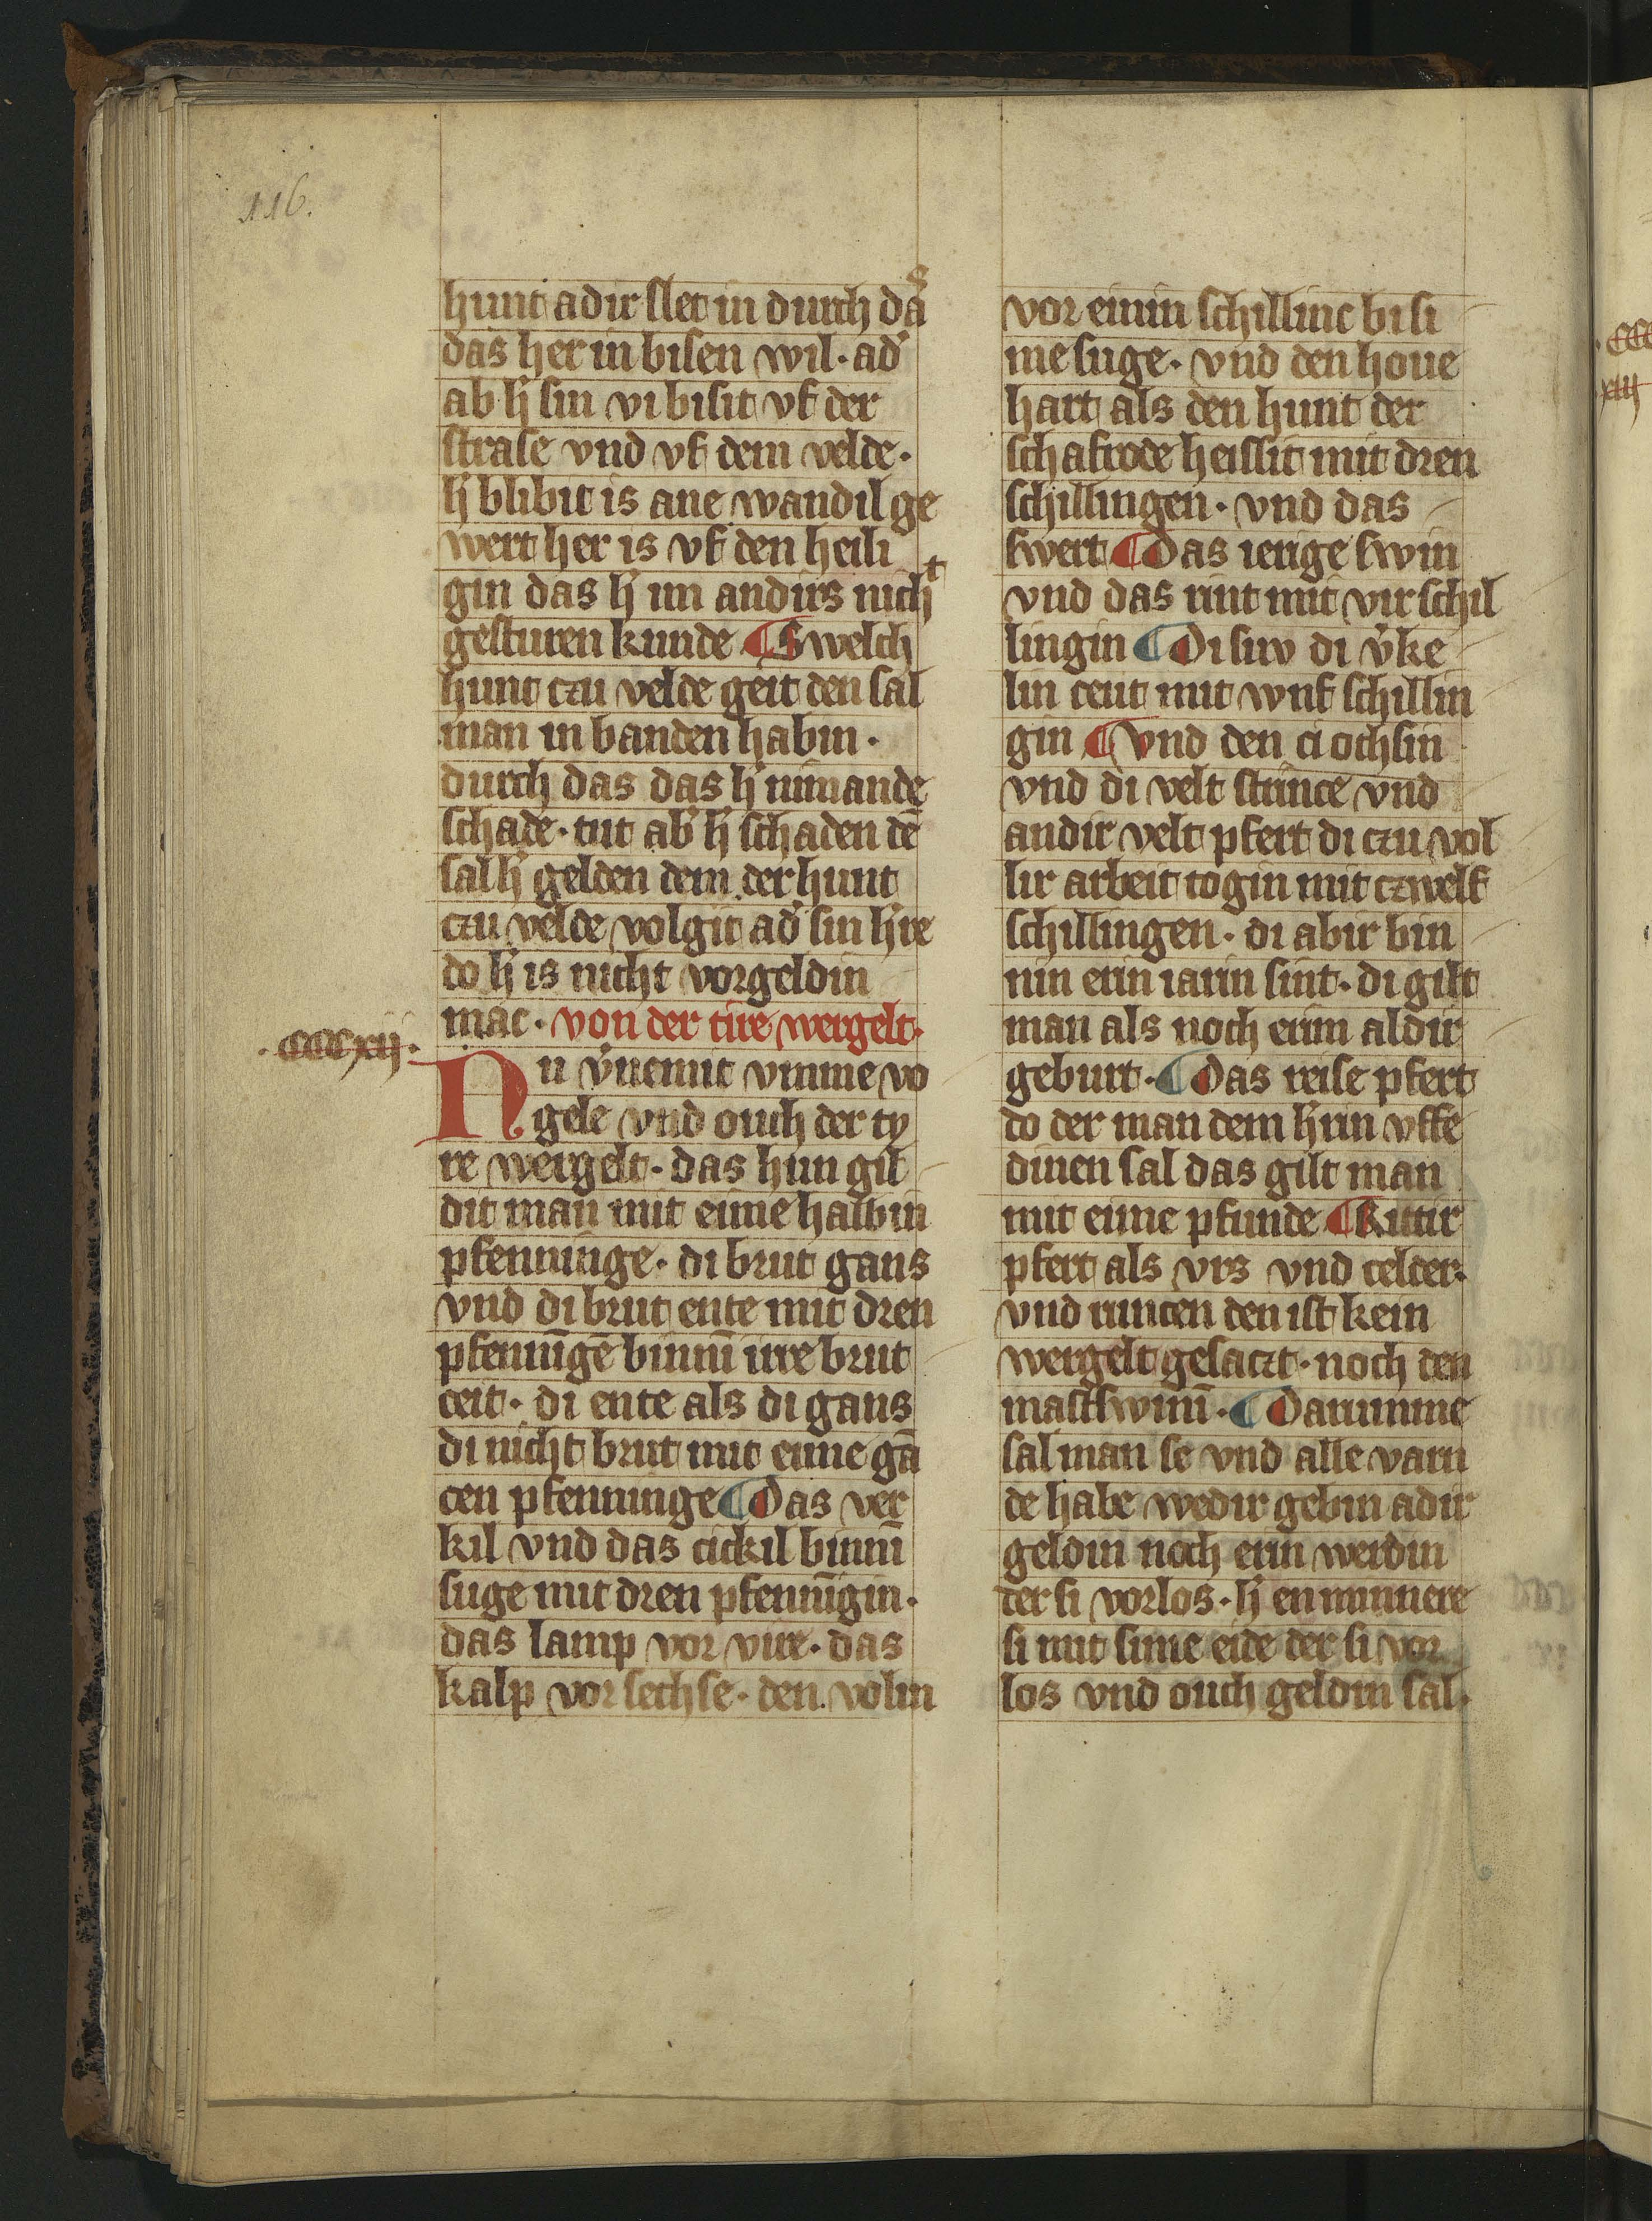 116.
hunt adir slet in durch das
das her in bisen wil · ad̛
ab h̛ sin vi bisit vf der
strase vnd vf dem velde ·
h̛ blibit is ane wandil ge
wert her is vf den heili
gin das h̛ im andirs nicht
gesturen kunde ¶ Swelch
hunt czu velde geit den sal
man in banden habin ·
durch das das h̛ nimande
schade · tut ab̛ h̛ schaden dē
sal h̛ gelden dem der hunt
czu velde volgit ad̛ sin h̛re
do h̛ is nicht vorgeldin
mac · von der tire wergelt ·
· CCCxij ·
Nu v̛nemit vmme vo
gele vnd ouch der ty
re wergelt · das hun gil
dit man mit eime halbin
pfenninge · di brut gans
vnd di brut ente mit dren
pfennīgē binnī irre brut
ceit · di ente als di gans
di nicht brut mit eime gā
cen pfenninge ¶ Das ver
kil vnd das cickil binnī
suge mit dren pfennīgin ·
das lamp vor vire · das
kalp vor sechse · den volin
vor einin schillinc bi si
me suge · vnd den houe
hart als den hunt der
schafrode heissit mit dren
schillingen · vnd das
swert ¶ Das ierige swin
vnd das rint mit vir schil
lingin ¶ Di suw di v̛ke
lin ceut mit wnf schillin
gin ¶ Vnd den ci ochsin
vnd di velt strince vnd
andir velt pfert di czu vol
lir arbeit togin mit czwelf
schillingen · di abir bin
nin erin iarin sint · di gilt
man als noch erim aldir
geburt · ¶ Das reise pfert
do der man dem h̛rin vffe
dinen sal das gilt man
mit eime pfunde ¶ Rittir
pfert als vrs vnd celder ·
vnd runcen den ist kein
wergelt gesaczt · noch den
mastswinī · ¶ Darumme
sal man se vnd alle varn
de habe wedir gebin adir
geldin noch erin werdin
der si vorlos · h̛ en minnere
si mit sime eide der si vor
los vnd ouch geldin sal ·